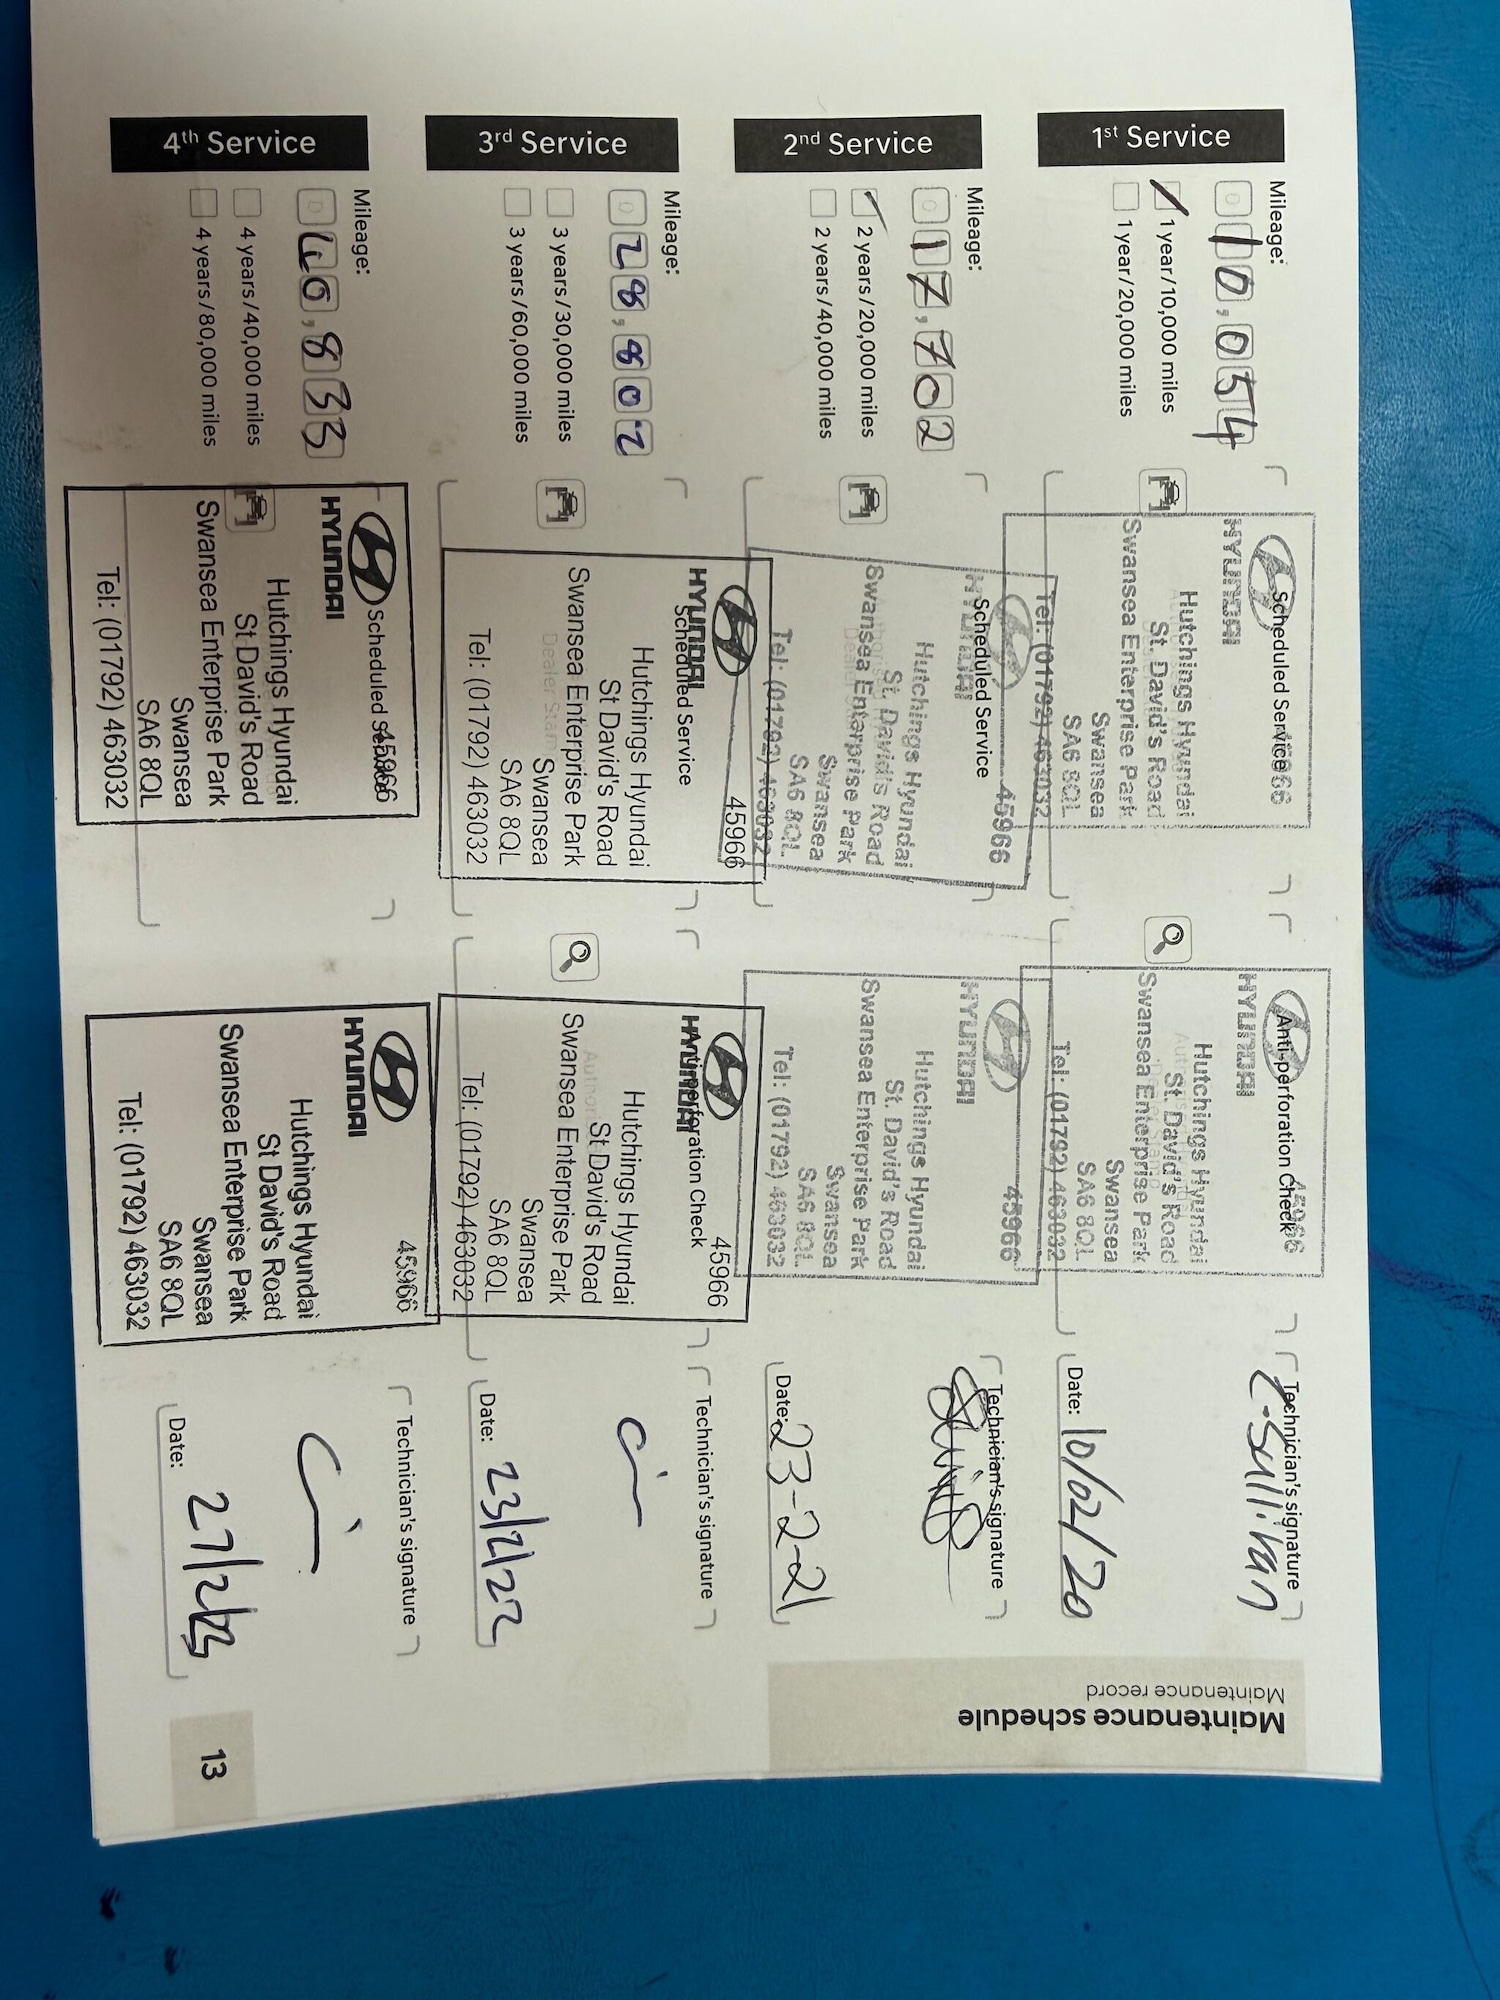 Maintenance schedule
Maintenance record
1st Service
Mileage:
010,054
1 year/10,000 miles
1 year/20,000 miles
Scheduled Service
45966
HYUNDAI
Hutchings Hyundai
St. David's Road
Swansea Enterprise Park
Swansea
SA6 8QL
Tel: (01792) 463032
Anti-perforation Check
45966
HYUNDAI
Hutchings Hyundai
St. David's Road
Swansea Enterprise Park
Swansea
SA6 8QL
Tel: (01792) 463032
Technician's signature
L.Sullivan
Date: 10/02/20
2nd Service
Mileage:
017,702
2 years/20,000 miles
2 years/40,000 miles
Scheduled Service
45966
HYUNDAI
Hutchings Hyundai
St. David's Road
Swansea Enterprise Park
Swansea
SA6 8QL
Tel: (01792) 463032
45966
HYUNDAI
Hutchings Hyundai
St. David's Road
Swansea Enterprise Park
Swansea
SA6 8QL
Tel: (01792) 463032
Technician's signature
Date: 23-2-21
3rd Service
Mileage:
028,802
3 years/30,000 miles
3 years/60,000 miles
45966
HYUNDAI
Scheduled Service
Hutchings Hyundai
St David's Road
Swansea Enterprise Park
Swansea
Dealer Stamp
SA6 8QL
Tel: (01792) 463032
45966
HYUNDAI
Anti-perforation Check
Hutchings Hyundai
St David's Road
Swansea Enterprise Park
Swansea
SA6 8QL
Tel: (01792) 463032
Technician's signature
Date: 23/2/22
4th Service
Mileage:
040,833
4 years/40,000 miles
4 years/80,000 miles
Scheduled Service
45966
HYUNDAI
Hutchings Hyundai
St David's Road
Swansea Enterprise Park
Swansea
SA6 8QL
Tel: (01792) 463032
45966
HYUNDAI
Hutchings Hyundai
St David's Road
Swansea Enterprise Park
Swansea
SA6 8QL
Tel: (01792) 463032
Technician's signature
Date: 27/2/23
13